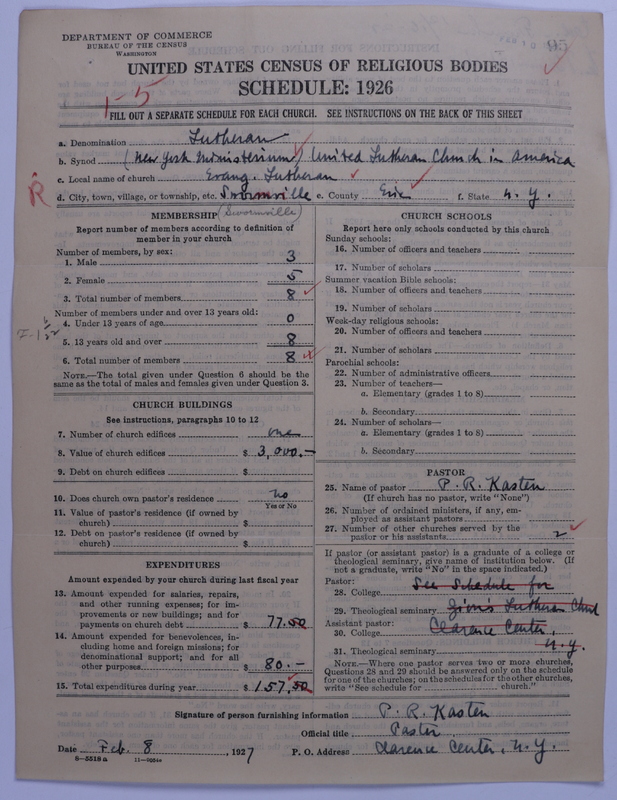 DEPARTMENT OF COMMERCE
BUREAU OF THE CENSUS
WASHINGTON
UNITED STATES CENSUS OF RELIGIOUS BODIES
SCHEDULE: 1926
1-5
FILL OUT A SEPARATE SCHEDULE FOR EACH CHURCH. SEE INSTRUCTIONS ON THE BACK OF THIS SHEET
a. Denomination Lutheran
b. Synod (New York Ministerium) United Lutheran Church in America
c. Local name of church Evang. Lutheran
R
d. City, town, village, or township, etc. Swormville e. County Erie f. State N. Y.
MEMBERSHIP (Swormville)
Report number of members according to definition of
member in your church
Number of members, by sex:
1. Male 3
2. Female 5
3. Total number of members 8
Number of members under and over 13 years old:
4. Under 13 years of age 0
5. 13 years old and over 8
6. Total number of members 8
NOTE.—The total given under Question 6 should be the
same as the total of males and females given under Question 3.
CHURCH BUILDINGS
See instructions, paragraphs 10 to 12
7. Number of church edifices one
8. Value of church edifices $ 3,000.-
9. Debt on church edifices $
10. Does church own pastor's residence no
Yes or No
11. Value of pastor's residence (if owned by
church) $
12. Debt on pastor's residence (if owned by
church) $
EXPENDITURES
Amount expended by your church during last fiscal year
13. Amount expended for salaries, repairs,
and other running expenses; for im-
provements or new buildings; and for
payments on church debt $ 77.50
14. Amount expended for benevolences, in-
cluding home and foreign missions; for
denominational support; and for all
other purposes $ 80.-
15. Total expenditures during year $ 157.50
CHURCH SCHOOLS
Report here only schools conducted by this church
Sunday schools:
16. Number of officers and teachers
17. Number of scholars
Summer vacation Bible schools:
18. Number of officers and teachers
19. Number of scholars
Week-day religious schools:
20. Number of officers and teachers
21. Number of scholars
Parochial schools:
22. Number of administrative officers
23. Number of teachers—
a. Elementary (grades 1 to 8)
b. Secondary
24. Number of scholars—
a. Elementary (grades 1 to 8)
b. Secondary
PASTOR
25. Name of pastor P. R. Kasten
(If church has no pastor, write "None")
26. Number of ordained ministers, if any, em-
ployed as assistant pastors
27. Number of other churches served by the
pastor or his assistants 2
If pastor (or assistant pastor) is a graduate of a college or
theological seminary, give name of institution below. (If
not a graduate, write "No" in the space indicated.)
Pastor:
28. College See Schedule for
29. Theological seminary Zion's Lutheran Church
Assistant pastor:
30. College Clarence Center,
31. Theological seminary N.Y.
NOTE.—Where one pastor serves two or more churches,
Questions 28 and 29 should be answered only on the schedule
for one of the churches; on the schedules for the other churches,
write "See schedule for church."
Signature of person furnishing information P. R. Kasten
Official title Pastor
Date Feb. 8, 1927 P. O. Address Clarence Center, N.Y.
8—5518a 11—9054a